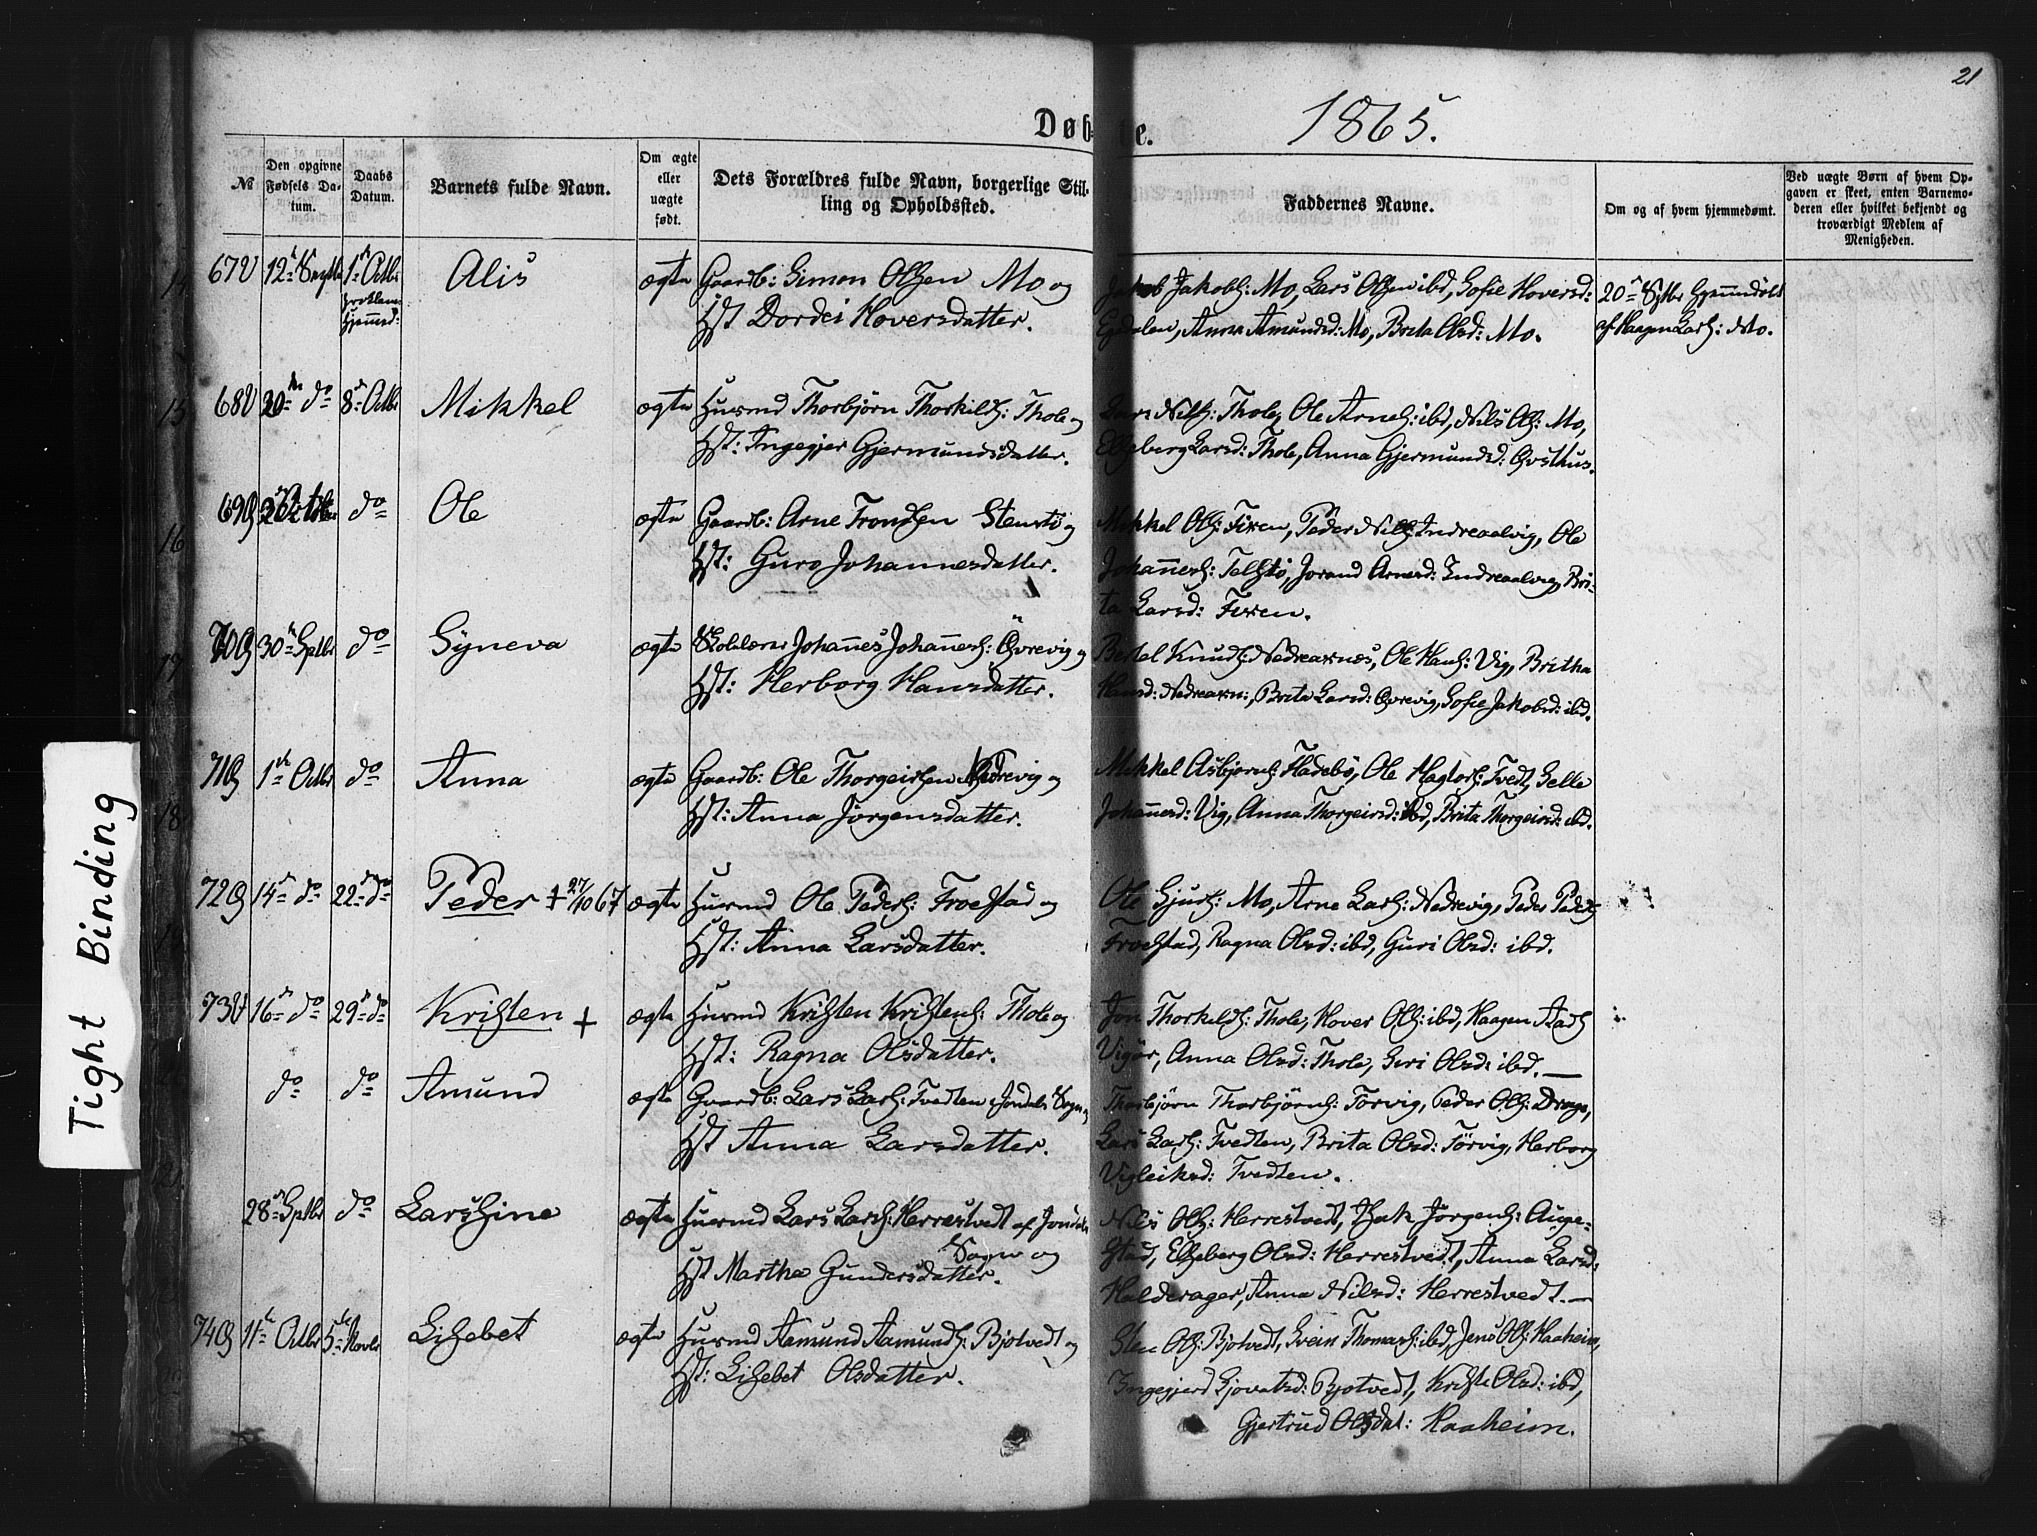 21
Døbte. 1865.
№
Den opgivne Fødsels Da-tum.
Daabs Datum.
Barnets fulde Navn.
Om ægte eller uægte født.
Dets Forældres fulde Navn, borgerlige Stil-ling og Opholdssted.
Faddernes Navne.
Om og af hvem hjemmedømt.
Ved uægte Børn af hvem Op-gaven er skeet, enten Barnemo-deren eller hvilket bekjendt og troværdigt Medlem af Menigheden.
67 12te Septbr 1ste Octbr Alis ægte Gaardb: Simon Olsen Mo og
Hst Dordei Hoversdatter.
Jakob Jakobs: Mo, Lars Olsen ibd, Sofie Hoversd:
Anna Amundsd: Mo, Brita Olsd: Mo.
20de Sptbr
af Haagen Lars: Mo.
68 30te do 8de Octbr Mikkel ægte Husmd Thorbjørn Thorkilds: Thole og
Hst: Ingegjer Gjermundsdatter.
Lars Nils: Thole, Ole Arnes: ibd, Nils Ols: Mo,
Elseberg Larsd: Thole, Anna Gjermundsd: Qvsthus.
69 do Ole ægte Gaardb: Arne Trondsen Stenstø og
Hst: Guro Johannesdatter.
Mikkel Ols: Fixen, Peder Nils: Indreaalvig, Ole
Johannes: Telstø, Jorand Arnesd: Indreaalvig, Bri-
ta Larsd: Fixen.
70 30te Sptbr do Syneva ægte Skolelærer Johannes Johannes: Øvrevig og
Hst: Herborg Hansdatter.
Bertel Knuds: Nedreaxnes, Ole Hans: Vig, Britha
Hansd: Nedreaxn:, Brita Larsd: Øvrevig, Sofie Jakobsd: ibd.
71 1ste Octbr do Anna ægte Gaardb: Ole Thorgeirsen Nedrevig og
Hst: Anna Jørgensdatter.
Mikkel Asbjørns: Fladebø, Ole Hagtors: Tvedt, Selle
Johannesd: Vig, Anna Thorgeirsd: ibd, Brita Thorgeirsd: ibd.
72 14de do 22de do Peder + 27/10 67 ægte Husmd Ole Peders: Froestad og
Hst: Anna Larsdatter.
Ole Sjurs: Mo, Arne Lars: Nedrevig, Peder Peders:
Froestad, Ragna Olsd: ibd, Guri Olsd: ibd.
73 16de do 29de do Kristen + ægte Husmd Kristen Kristens: Thole og
Hst: Ragna Olsdatter.
Jon Thorkilds: Thole, Hover Ols: ibd, Haagen Aads
Vigør, Anna Olsd: Thole, Siri Olsd: ibd.—
do do Amund ægte Gaardb: Lars Lars: Tvedten Jondals Sogn og
Hst Anna Larsdatter.
Thorbjørn Thorbjørns: Torvig, Peder Ols: Drage,
Lars Lars: Tvedten, Brita Olsd: Torvig, Herborg
Vigleiksd: Tvedten.
28de Sptbr do Larsine ægte Husmd Lars Lars: Herrestvedt af Jondals
Sogn og
Hst Martha Gundersdatter.
Nils Ols: Herrestvedt, Isak Jørgens: Auge-
stad, Elseberg Olsd: Herrestvedt, Anna Larsd:
Halderager, Anna Nilsd: Herrestvedt.—
74 11te Octbr 5te Novbr Lisebet ægte Husmd Aamund Aamunds: Bjotvedt og
Hst: Lisebet Olsdatter.
Sten Ols: Bjotvedt, Svein Thomas: ibd, Jens Ols: Haaheim,
Ingegjerd Sjovatsd: Bjotvedt, Kristi Olsd: ibd,
Gjertrud Olsdat: Haaheim.
Tight Binding